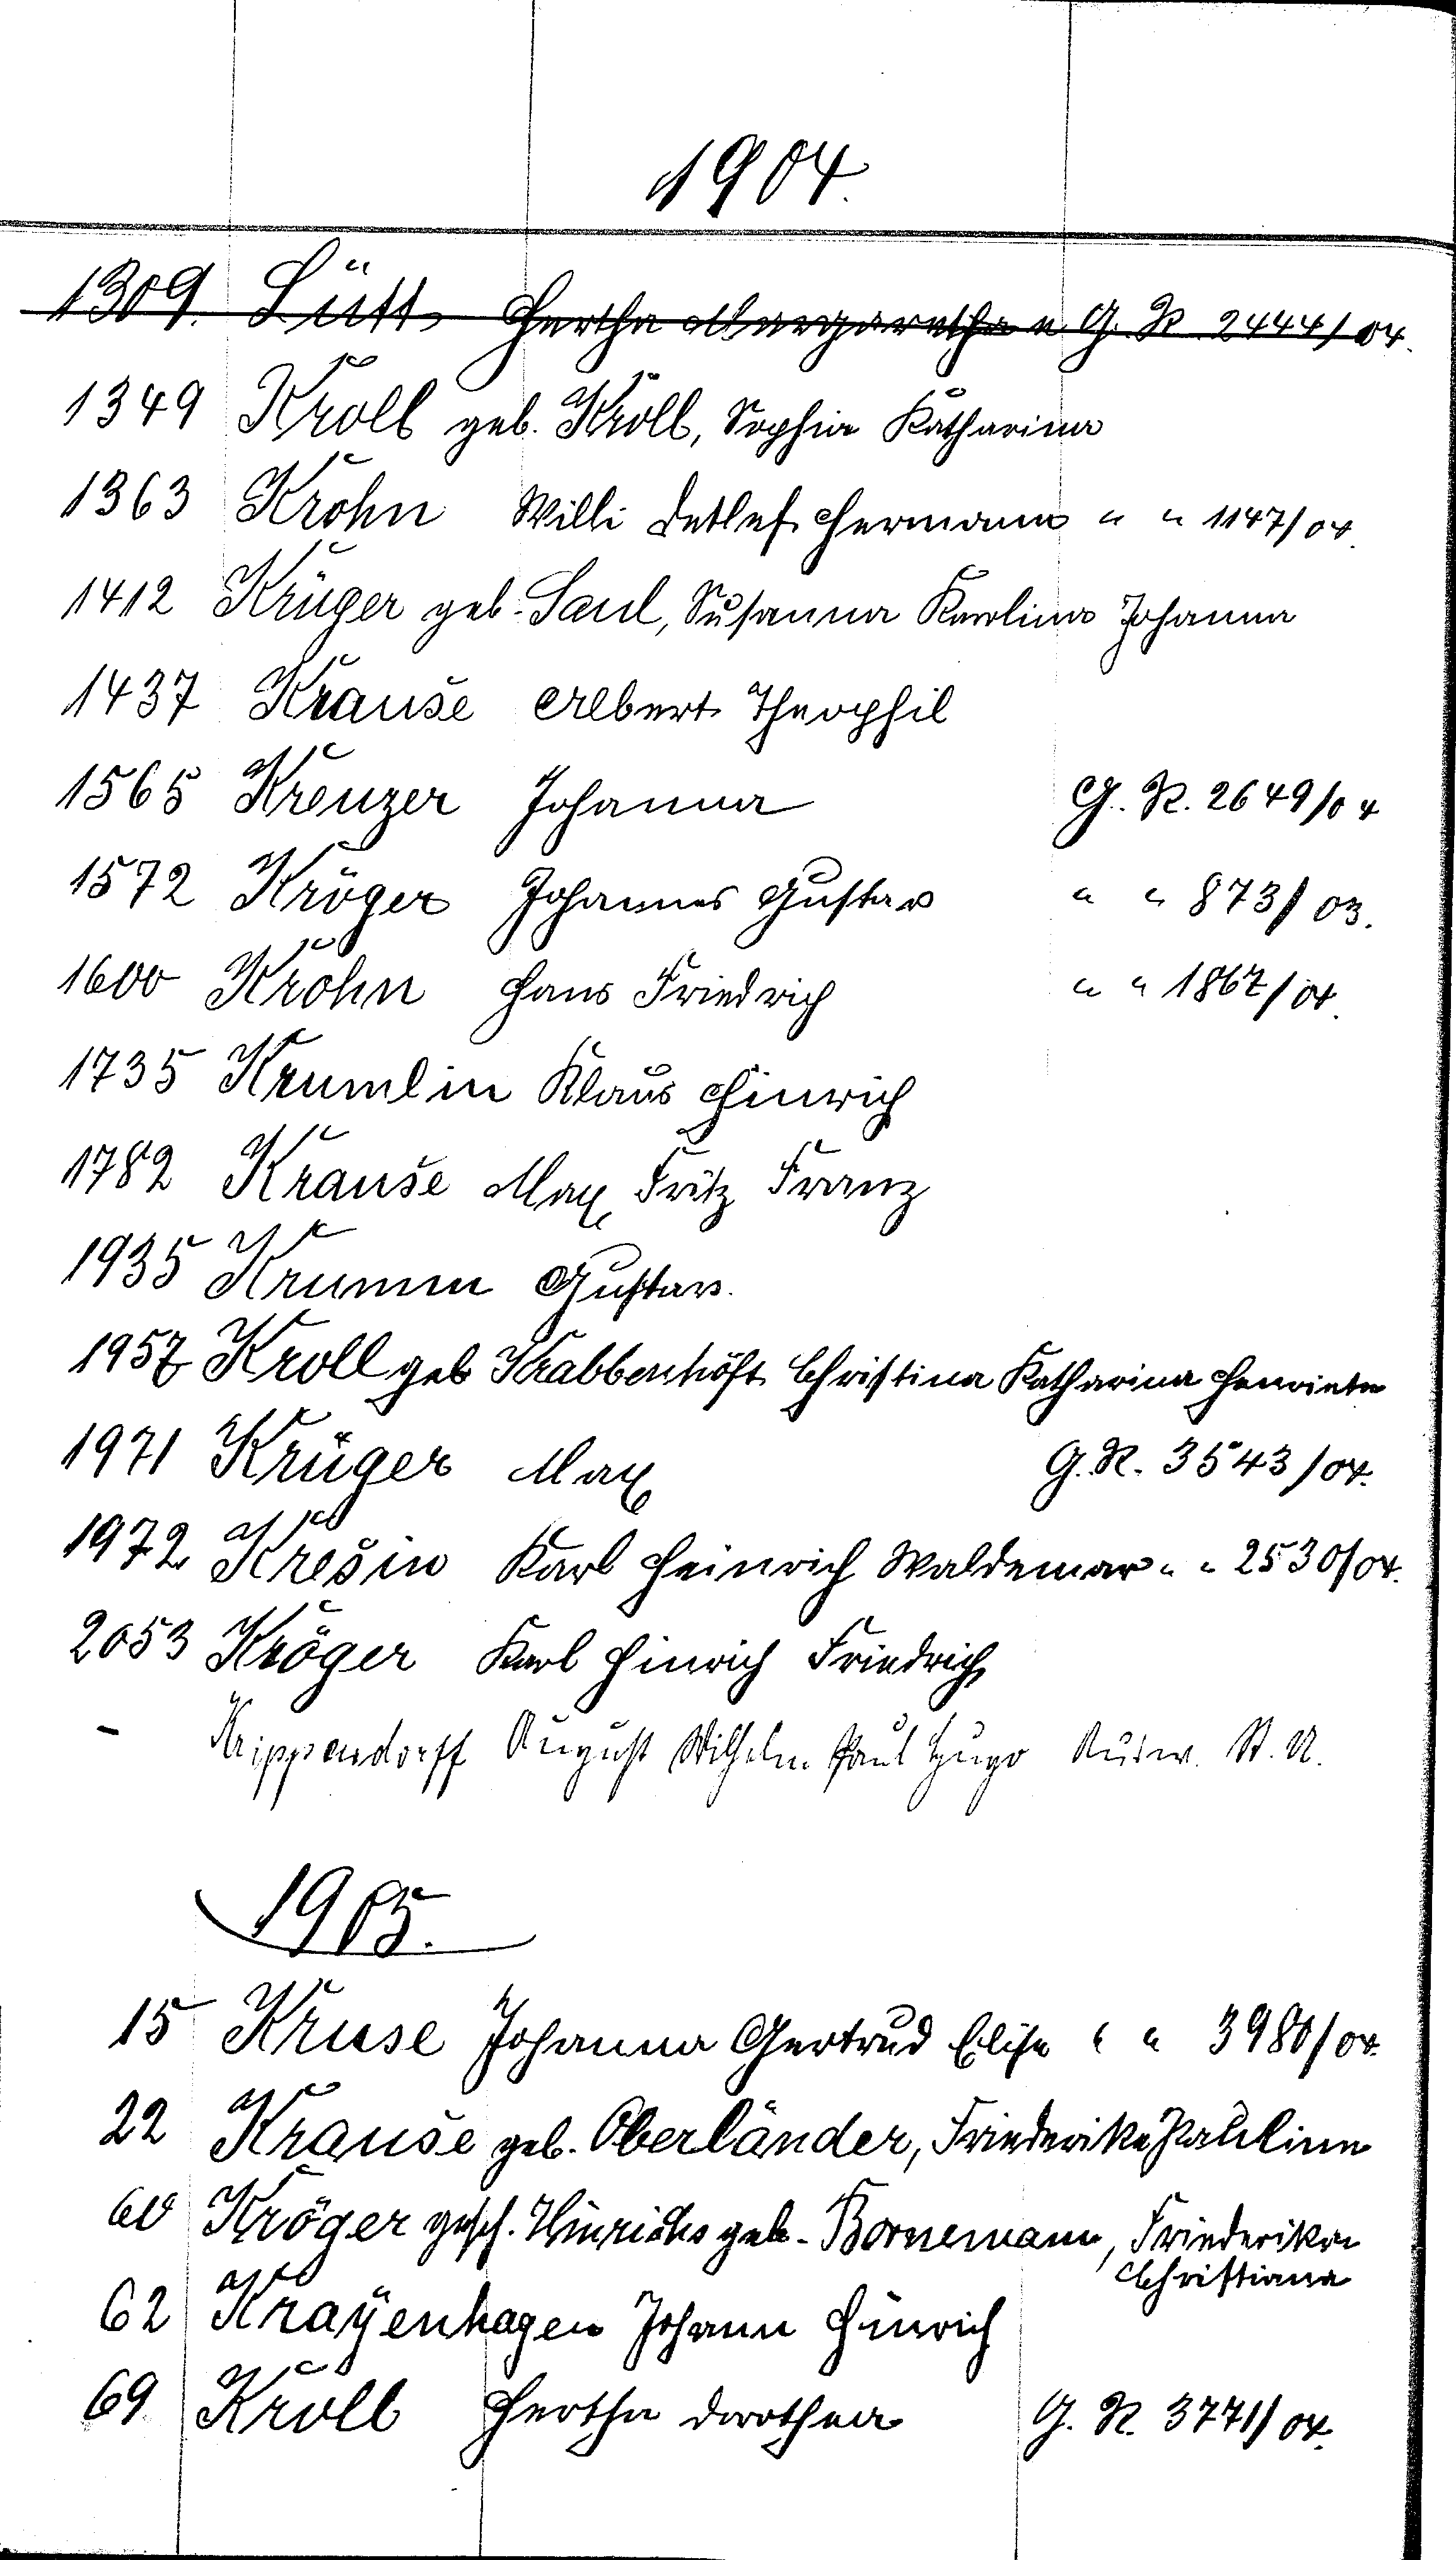 1904.
1309. Lütt Hertha Margaretha " G. R. 2444/04.
1349 Kroll geb. Kroll, Sophia Katharina
1363 Krohn Willi Detlef Hermann " " 1147/04.
1412 Krüger geb. Saul, Susanna Karolina Johanna
1437 Krause Albert Theophil
1565 Kreuzer Johanna G. R. 2649/04
1572 Kröger Johannes Gustav " " 873/03.
1600 Krohn Hans Friedrich " " 1867/04.
1735 Krumlin Klaus Hinrich
1782 Krause Max Fritz Franz
1935 Krumm Gustav.
1957 Kroll geb Krabbenhöft Christina Katharina Henriette
1971 Krüger Max G. R. 3543/04.
1972 Kresin Karl Heinrich Waldemar " " 2530/04.
2053 Kröger Karl Hinrich Friedrich
- Krippendorff August Wilhelm Paul Hugo Ausw. St. A.
1905.
15 Kruse Johanna Gertrud Elise " " 3980/04.
22 Krause geb. Oberländer, Friederike Pauline
60 Kröger gesch. Hinrichs geb. Bornemann, Friederika
Christiana
62 Krayenhagen Johann Hinrich
69 Kroll Hertha Dorothea G. R. 3771/04.